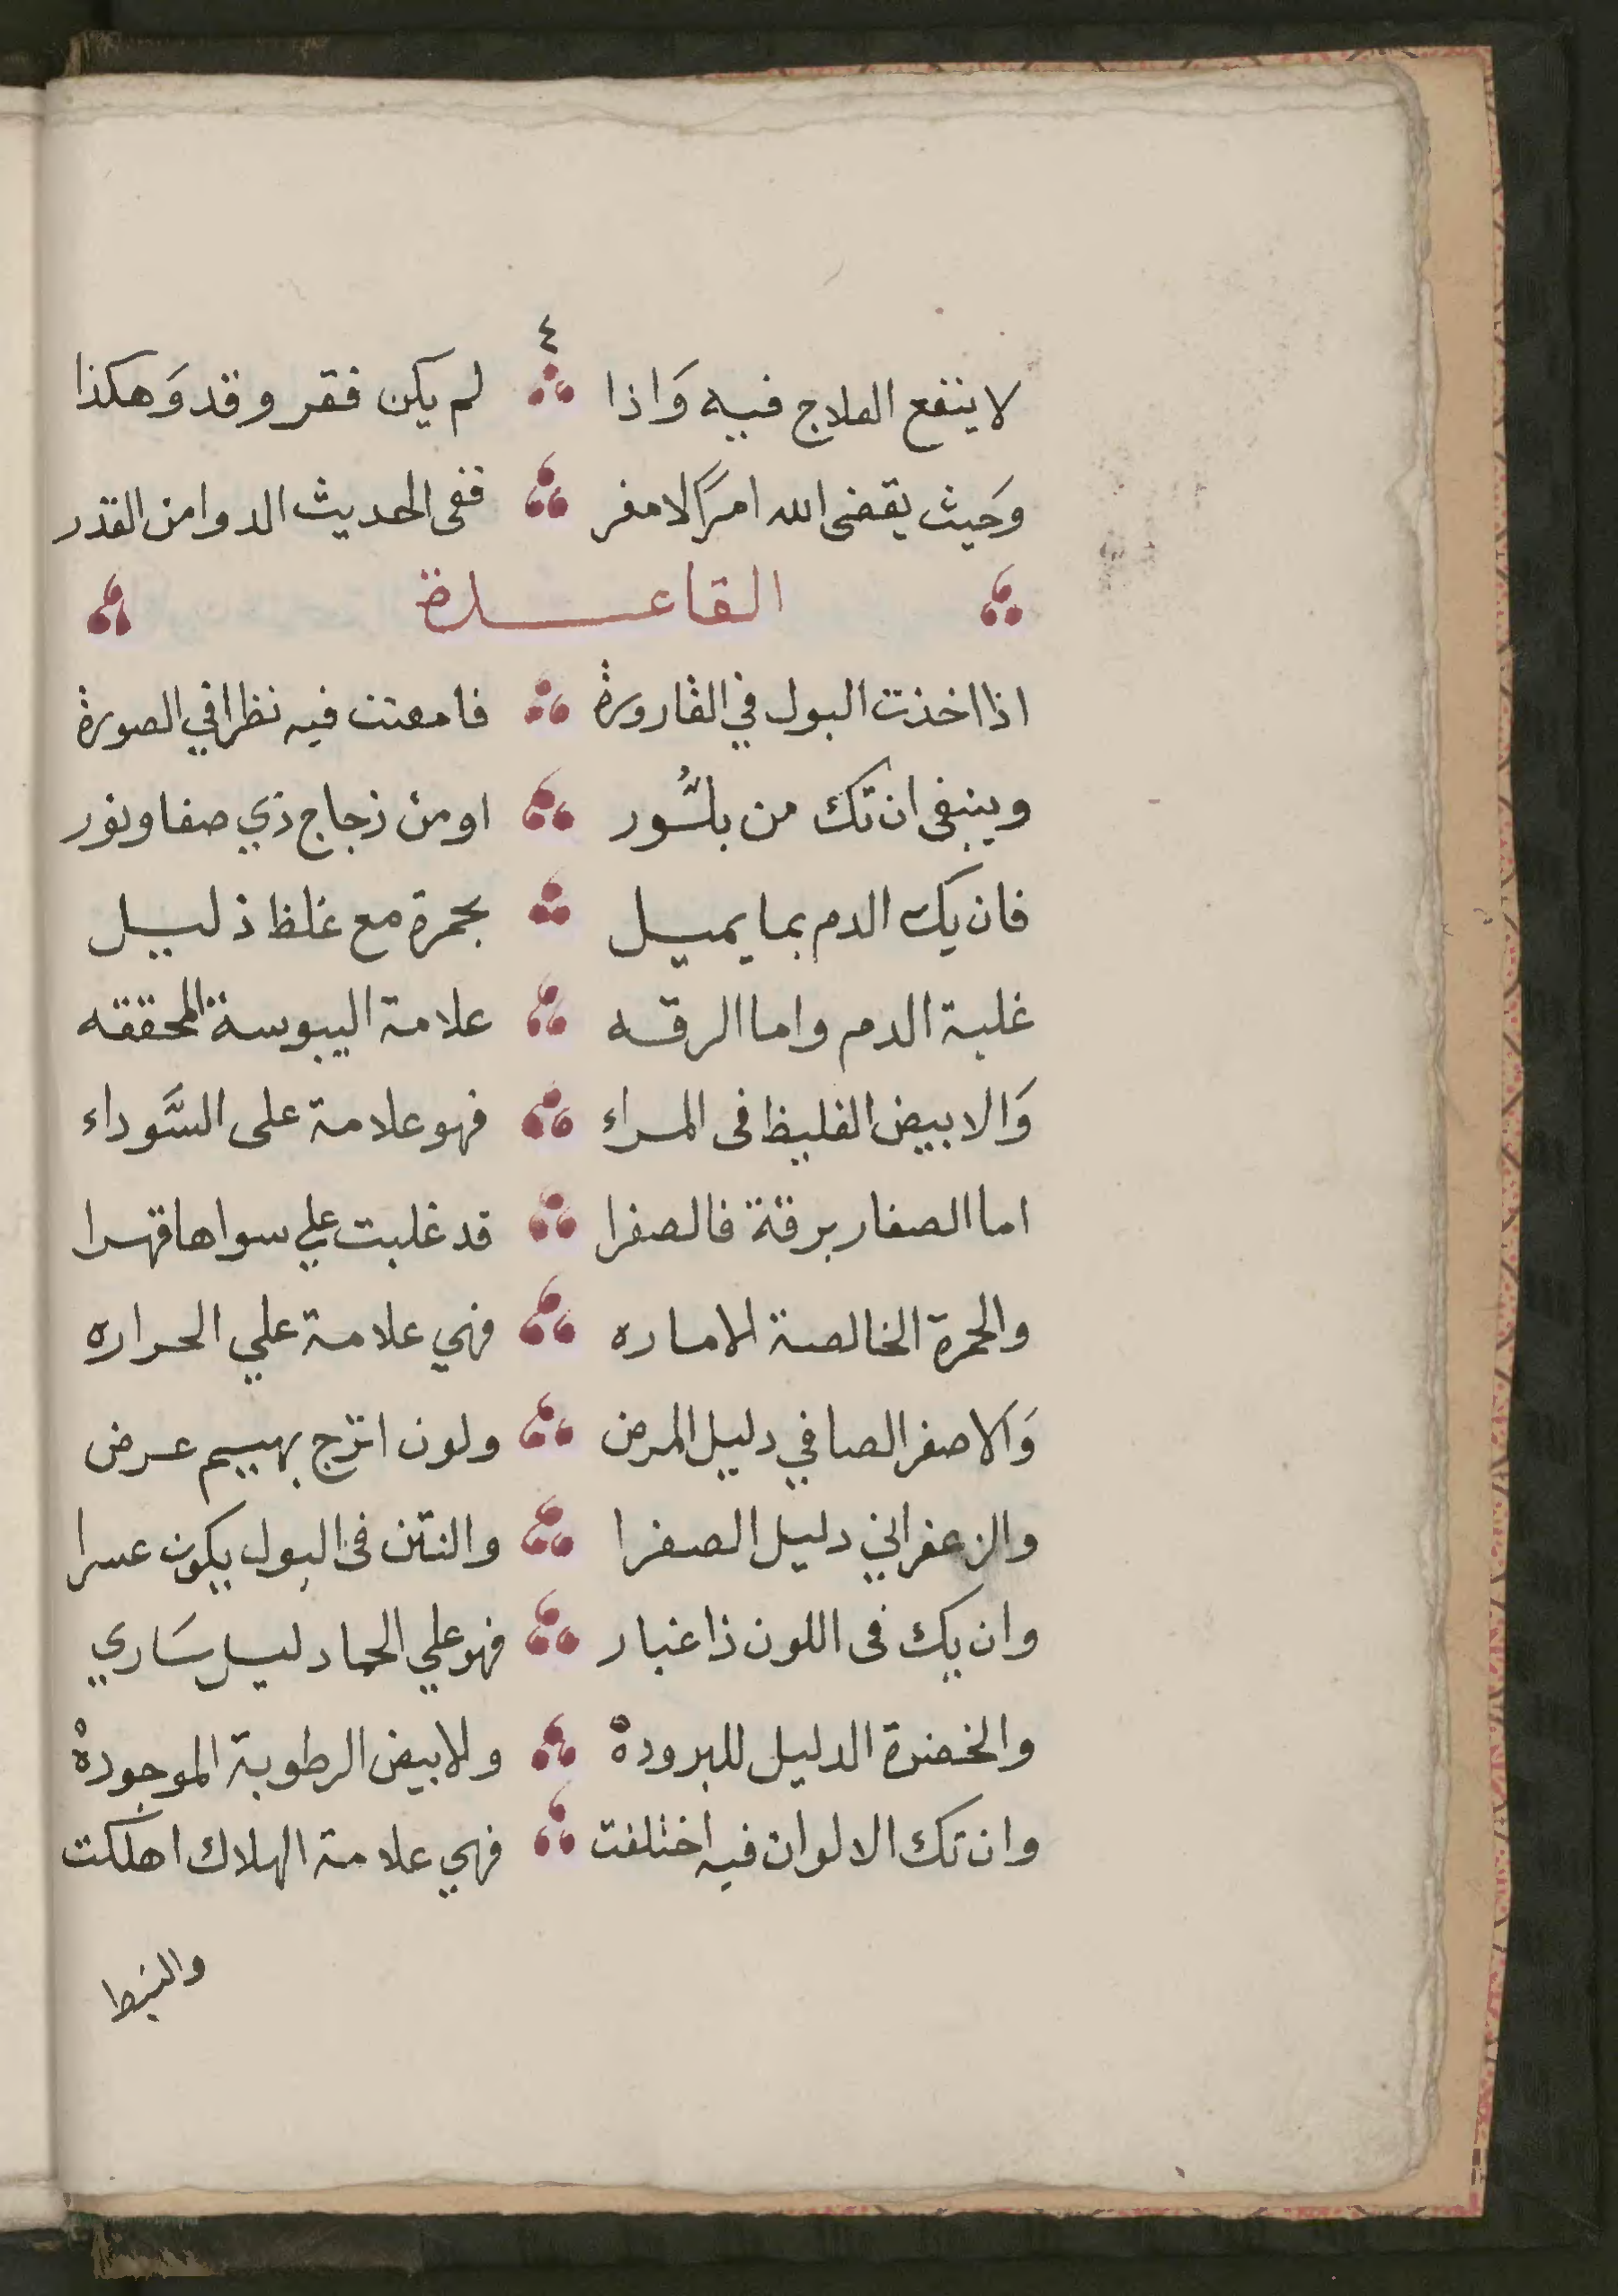 ٤
لا ينفع العلاج فيه وَاذا لم يكن فقر وقد وَهكذا
وَحيث يقضى الله امرًا لا مفر ففى الحديث الدوا من القدر
القاعدة
اذا اخذت البول في القارورة فامعنت فيه نظرا في الصورة
وينبغى ان تك من بلُّور او من زجاج ذي صفا ونور
فان يك الدم بما يميل بحمرة مع غلظ ذليل
غلبة الدم واما الرقه علامة اليبوسة المحققه
وَالابيض الغليظ فى المراء فهو علامة على السَّوداء
اما الصفار برقة فالصفرا قد غلبت علي سواها قهرا
والحمرة الخالصة الاماره فهي علامة علي الحراره
وَالاصفر الصافي دليل المرض ولون اترج بهييم عرض
والزعفراني دليل الصفرا والنتن فى البول يكون عسرا
وان يك فى اللون ذا غبار فهو علي الحما دليل سَاري
والخضرة الدليل للبرودة وللابيض الرطوبة الموجودة
وان تك الالوان فيه اختلفت فهي علامة الهلاك اهلكت